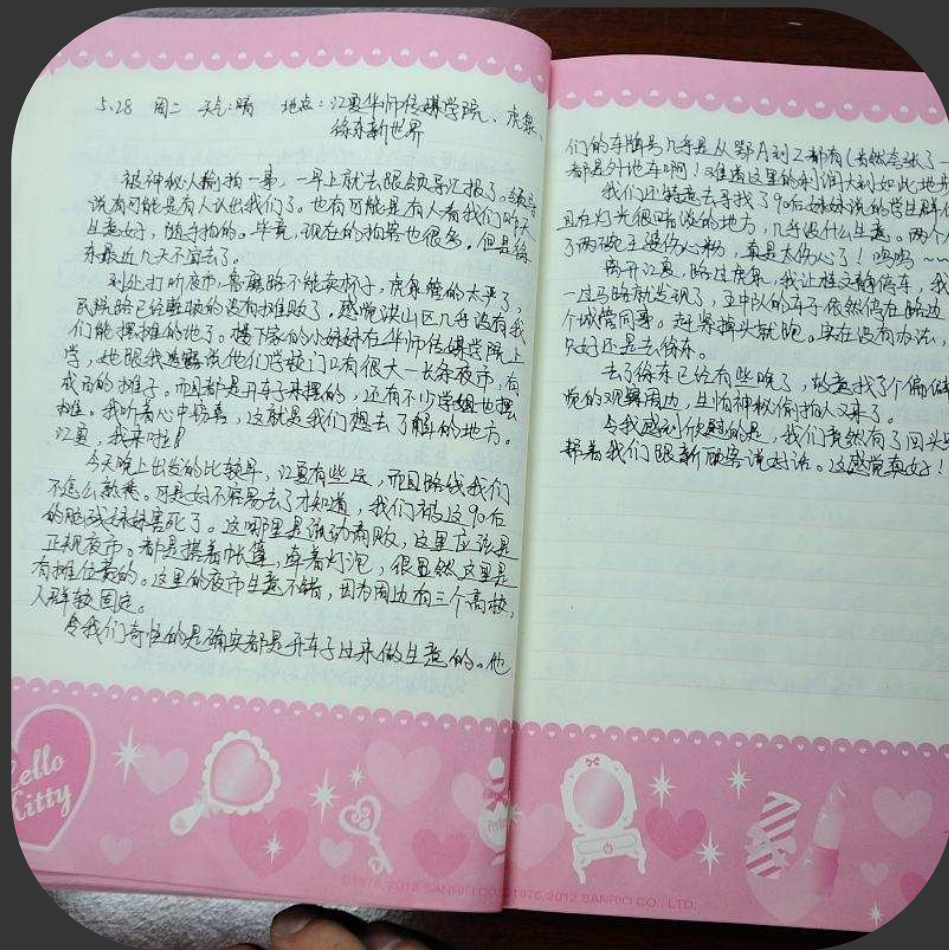 5.28 周二 天气:晴 地点:江夏华师传媒学院、虎泉、
徐东新世界
被神秘人偷拍一事,一早上就去跟领导汇报了。领导
说有可能是有人认出我们了。也有可能是有人看我们昨天
生意好,随手拍的。毕竟,现在的拍客也很多。但是徐
东最近几天不宜去了。
到处打听夜市,鲁磨路不能卖杯子,虎泉管的太严了,
民族路已经整顿的没有摊贩了。感觉洪山区几乎没有我
们能摆摊的地了。楼下家的小妹妹在华师传媒学院上
学,她跟我透露说他们学校门口有很大一长条夜市,有
成百的摊子。而且都是开车子来摆的,还有不少学姐也摆
摊。我听着心中窃喜,这就是我们想去了解的地方。
江夏,我来啦!
今天晚上出发的比较早,江夏有些远,而且路线我们
不怎么熟悉。可是好不容易去了才知道,我们被这90后
的脑残妹妹害死了。这哪里是流动商贩,这里应该是
正规夜市。都是搭着帐篷,牵着灯泡,很显然这里是
有摊位费的。这里的夜市生意不错,因为周边有三个高校,
人群较固定。
令我们奇怪的是确实都是开车子过来做生意的。他
们的车牌号几乎是从鄂A到Z都有(当然夸张了一
都是外地车啊!难道这里的利润大到如此地步
我们还特意去寻找了90后妹妹说的学生群体
且在灯光很暗淡的地方,几乎没什么生意。两个人
了两碗王婆伤心粉,真是太伤心了!呜呜~~
离开江夏,路过虎泉,我让桂文静停车,我
一过马路就发现了,亚中队的车子依然停在路边
个城管同哥。赶紧掉头就跑。实在没有办法,
只好还是去徐东。
去了徐东已经有些晚了,故意找了个偏僻
觉的观察周边,生怕神秘偷拍人又来了。
令我感到欣慰的是,我们竟然有了回头客
帮着我们跟新顾客说好话。这感觉真好!
Hello
Kitty
©1976, 2012 SANRIO CO.,
1976, 2012 SANRIO CO., LTD.